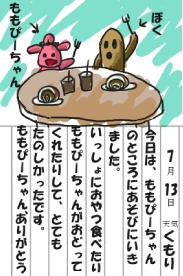 ぼく
ももぴーちゃん
7月13日 天気 くもり
今日は、ももぴーちゃん
のところにあそびにいき
ました。
いっしょにおやつ食べたり
ももぴーちゃんがおどって
くれたりして、とても
たのしかったです。
ももぴーちゃんありがとう